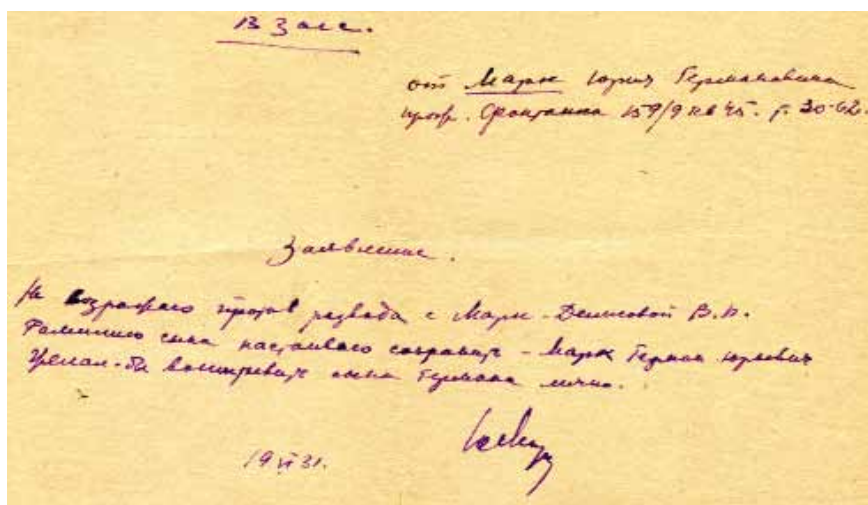 В Загс.
от Марк Юрия Германовича
прож. Фонтанка 159/9 кв 45. т. 30-62.
Заявление.
Не возражаю против развода с Марк-Денисовой В.
Фамилию сына настаиваю сохранить - Марк Герман Юрьевич
Желал-бы воспитывать сына Германа лично.
19 VI 31.